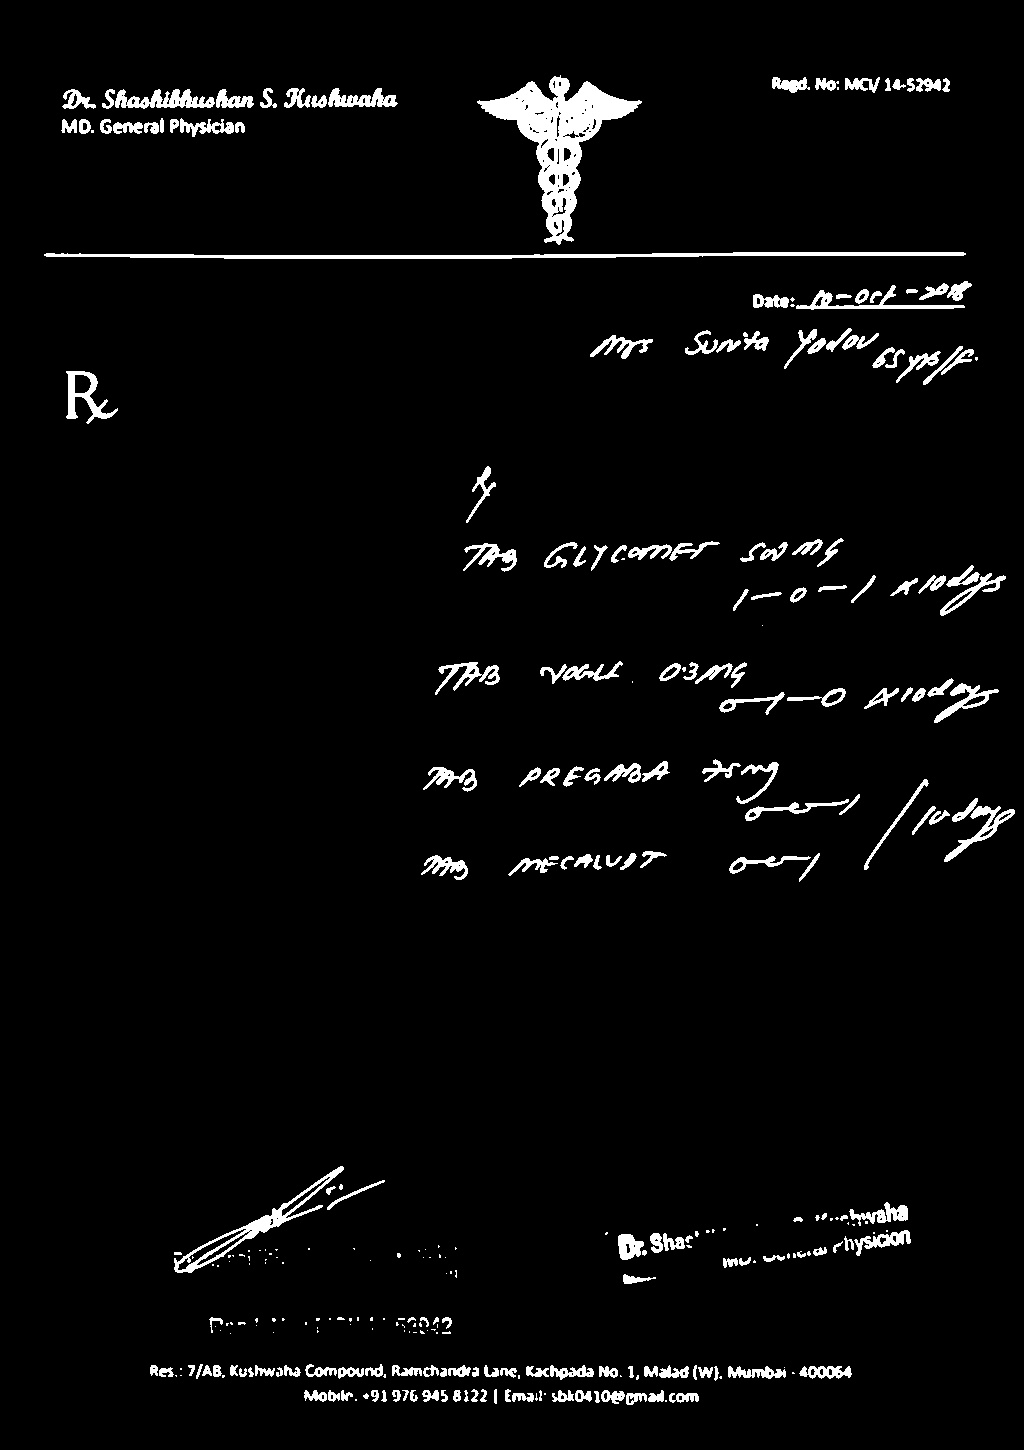 Dr. Shashibhushan S. Kushwaha
MD. General Physician
Regd. No: MCI/ 14-52942
Date: 10-Oct-2018
Mrs Sunita Yadav 65yrs/F.
Rx
Rx
TAB GLYCOMET 500 MG
1-0-1 x 10days
TAB VOGLI 0.3MG
0-1-0 x 10days
TAB PREGABA 75mg
0-0-1
/ 10 days
TAB 0-0-1
Dr. Kushwaha
MD. General Physician
52942
Res.: 7/AB, Kushwaha Compound, Ramchandra Lane, Kachpada No. 1, Malad (W), Mumbai - 400064
Mobile: +91 976 945 8122 | Email: sbk0410@gmail.com